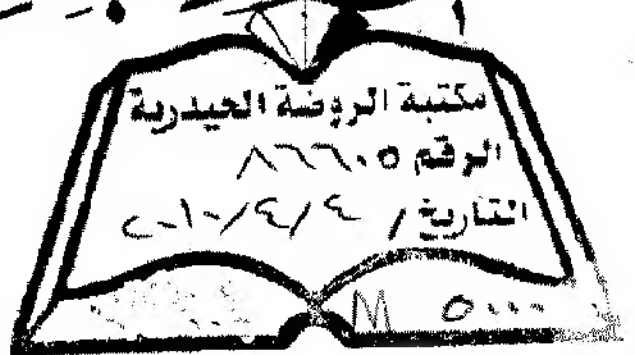 مكتبة الروضة الحيدرية
الرقم ٨٦٦٠٥
التاريخ / ٤ / ٤ / ٢٠١٠
M ٥٠٠٠